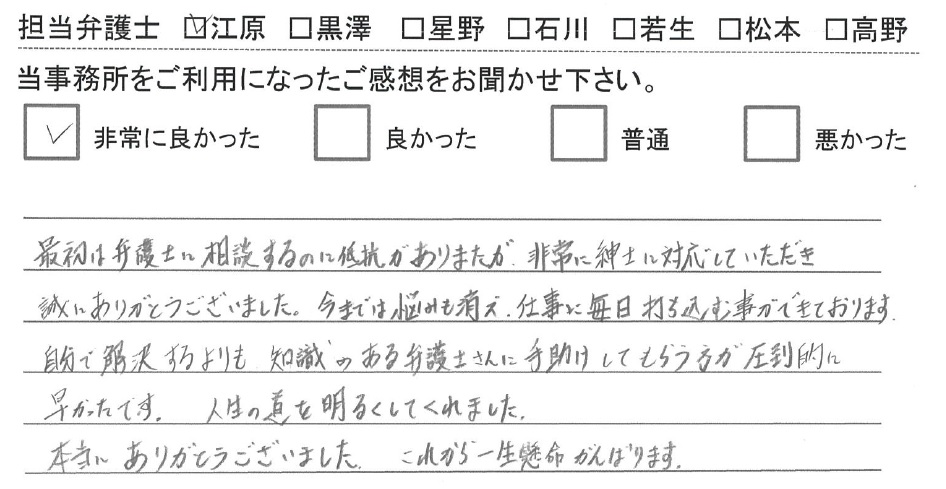 担当弁護士 ☑江原 □黒澤 □星野 □石川 □若生 □松本 □高野
当事務所をご利用になったご感想をお聞かせ下さい。
☑ 非常に良かった □ 良かった □ 普通 □ 悪かった
最初は弁護士に相談するのに抵抗がありまたが、非常に紳士に対応していただき
誠にありがとうございました。今までは悩みも消え、仕事に毎日打ち込む事ができております。
自分で解決するよりも知識のある弁護士さんに手助けしてもらう方が圧倒的に
早かったです。 人生の道を明るくしてくれました。
本当にありがとうございました。 これから一生懸命がんばります。